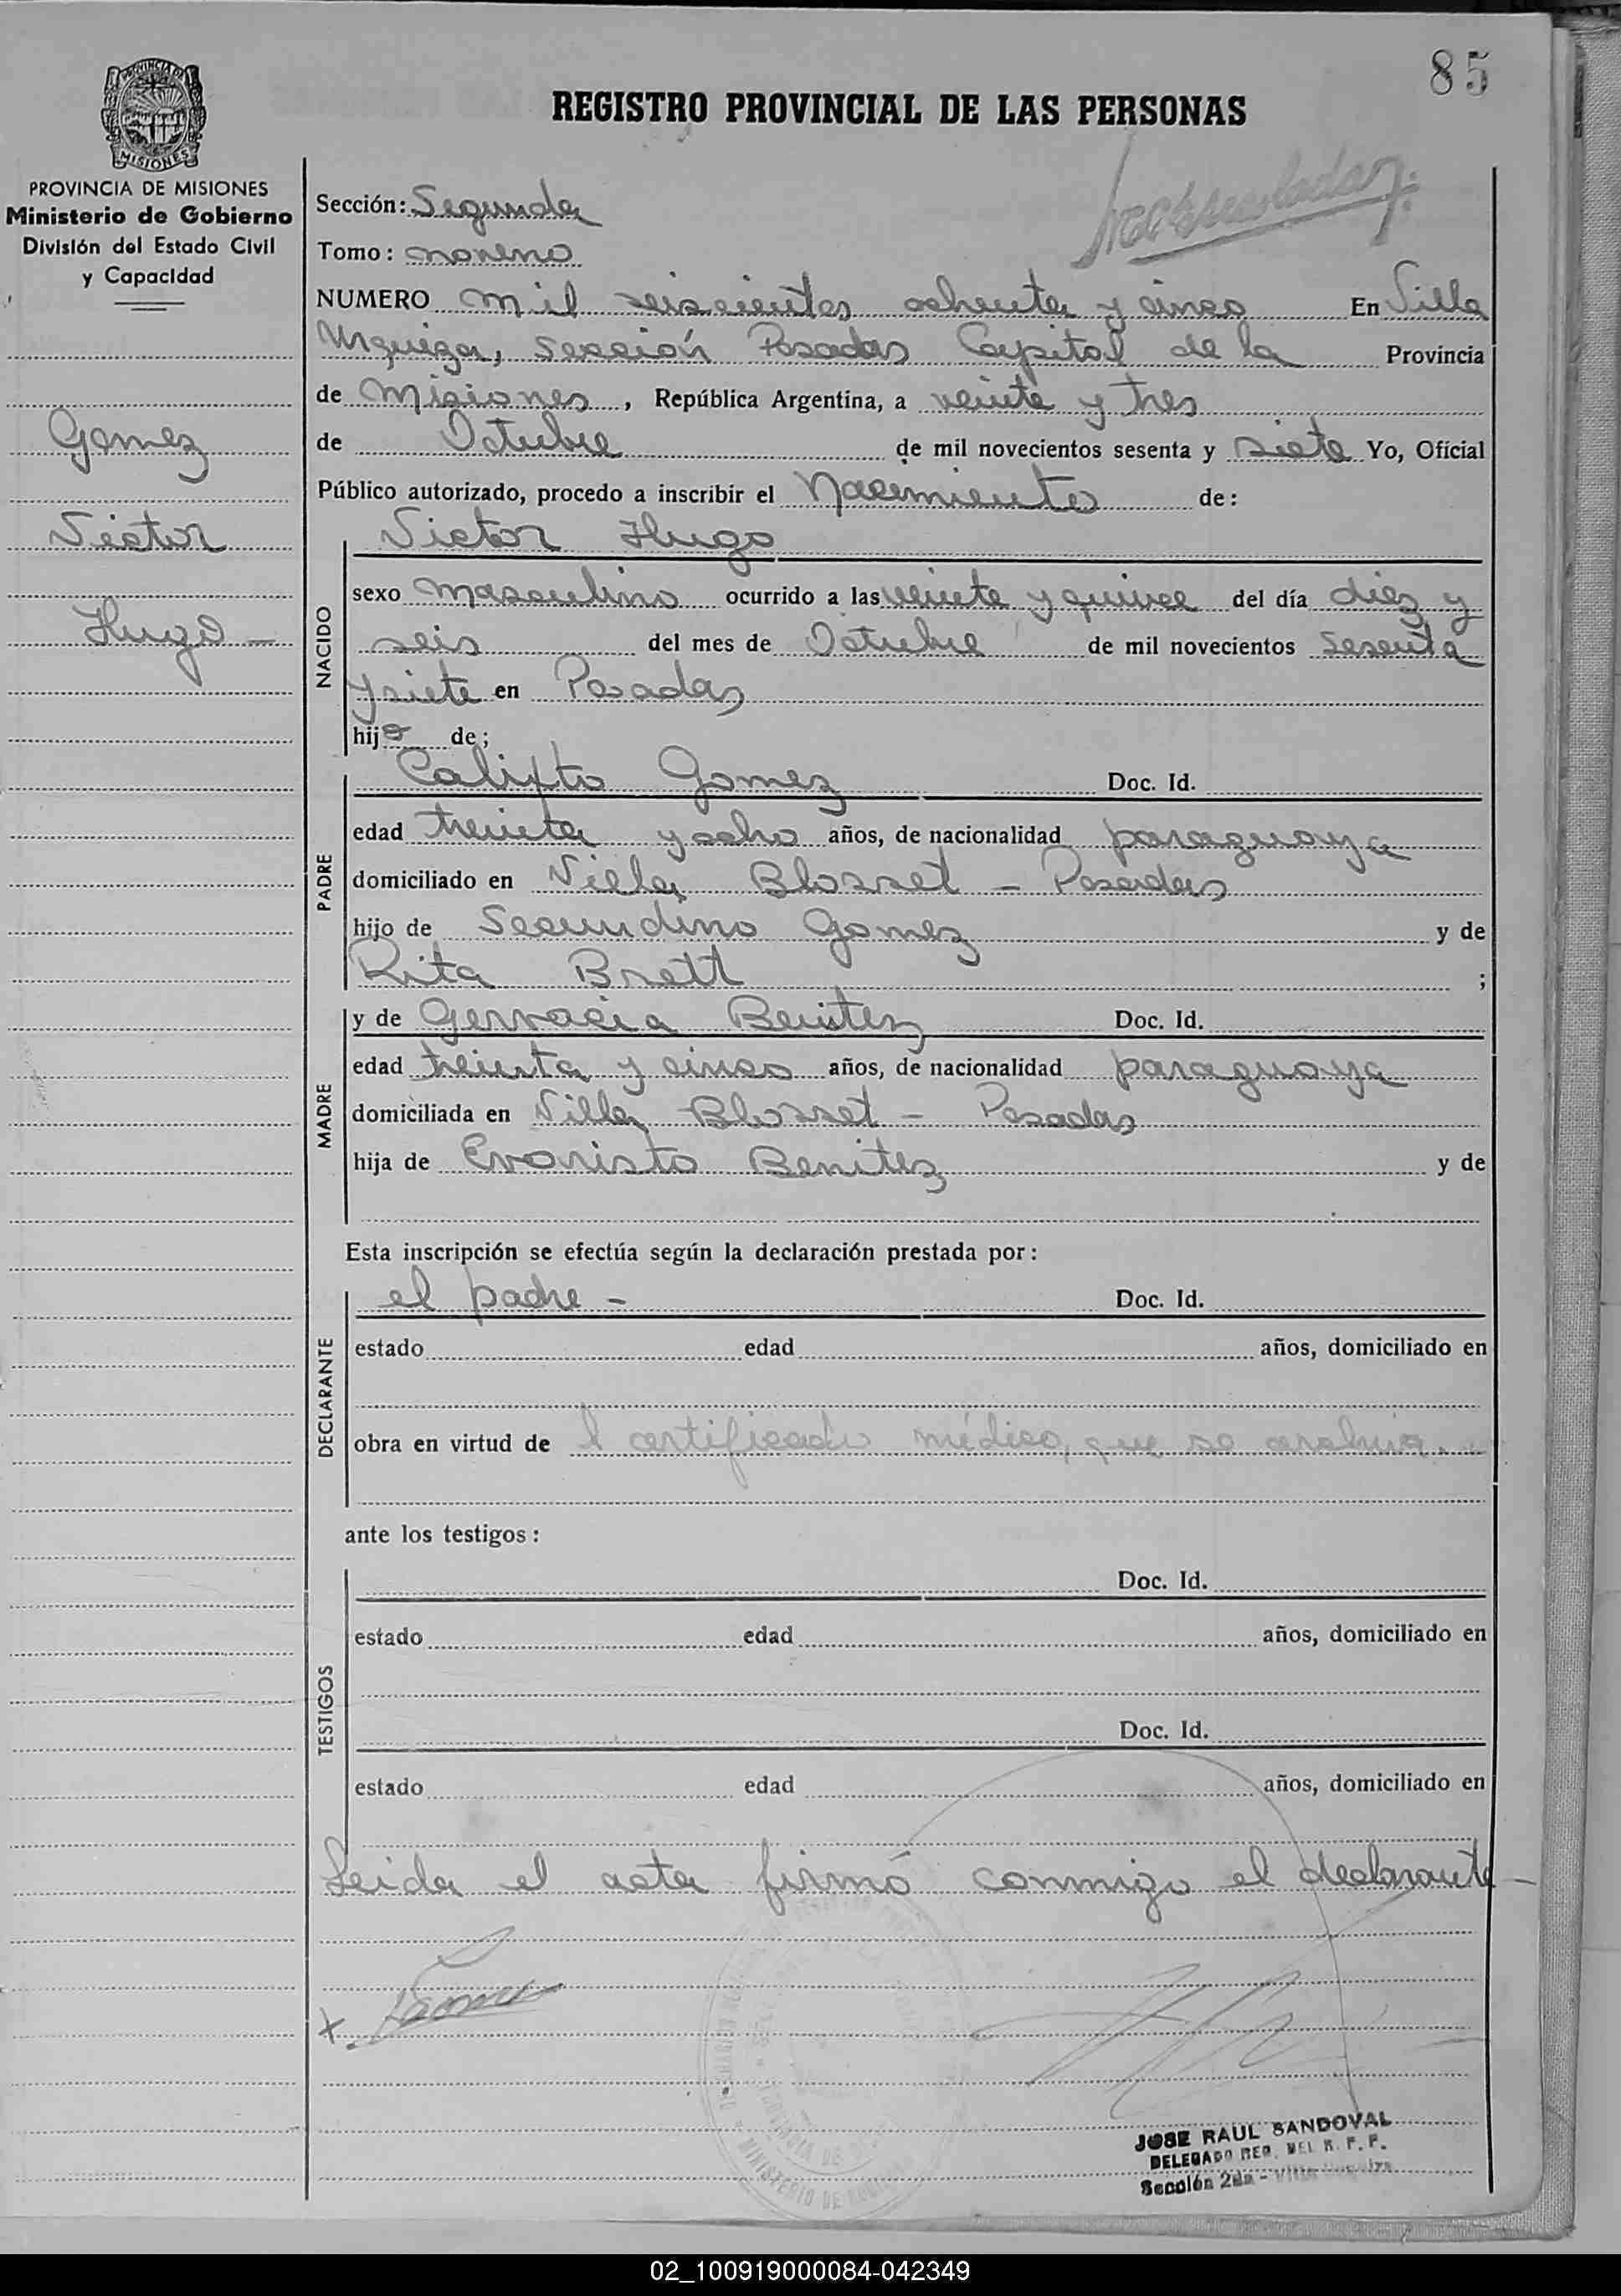 85
REGISTRO PROVINCIAL DE LAS PERSONAS
PROVINCIA DE MISIONES
MISIONES
PROVINCIA DE MISIONES
Ministerio de Gobierno
División del Estado Civil
y Capacidad
Gomez
Victor
Hugo -
Sección: Segunda
Tomo: noveno
NUMERO mil seiscientos ochenta y cinco En Villa
Urquiza, sección Posadas Capital de la Provincia
de Misiones, República Argentina, a veinte y tres
de Octubre de mil novecientos sesenta y siete Yo, Oficial
Público autorizado, procedo a inscribir el Nacimiento de:
Victor Hugo
NACIDO
sexo masculino ocurrido a las veinte y quince del día diez y
seis del mes de Octubre de mil novecientos sesenta
y siete en Posadas
hijo de;
PADRE
Calixto Gomez Doc. Id.
edad treinta y ocho años, de nacionalidad paraguaya
domiciliado en Villa Blosset - Posadas
hijo de Secundino Gomez y de
Rita Brett ;
MADRE
y de Gervacia Benitez Doc. Id.
edad treinta y cinco años, de nacionalidad paraguaya
domiciliada en Villa Blosset - Posadas
hija de Evaristo Benitez y de
Esta inscripción se efectúa según la declaración prestada por:
DECLARANTE
el padre - Doc. Id.
estado edad años, domiciliado en
obra en virtud de l certificado médico, que se archiva.
ante los testigos:
TESTIGOS
Doc. Id.
estado edad años, domiciliado en
Doc. Id.
estado edad años, domiciliado en
Leida el acta firmó conmigo el declarante -
JOSE RAUL SANDOVAL
DELEGADO REG. DEL R. P. P.
Sección 2da - Villa Urquiza
02_100919000084-042349